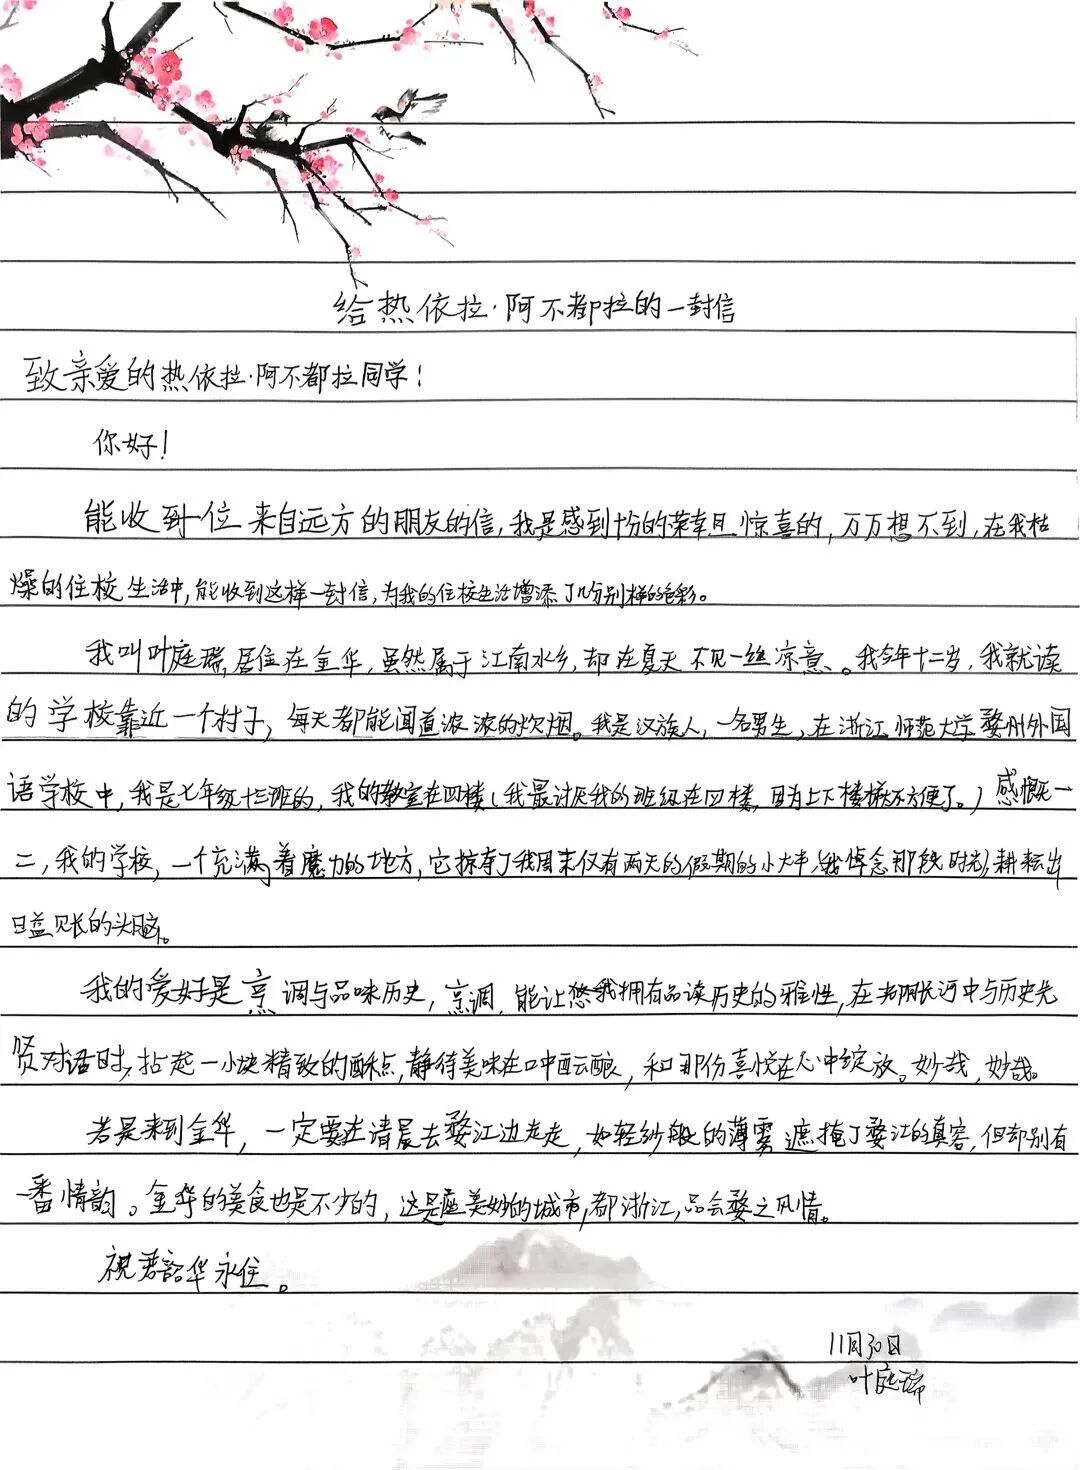 给热依拉·阿不都拉的一封信
致亲爱的热依拉·阿不都拉同学！
你好！
能收到一位来自远方的朋友的信，我是感到十分的荣幸且惊喜的，万万想不到，在我枯
燥的住校生活中，能收到这样一封信，为我的住校生活增添了几分别样的色彩。
我叫叶庭瑞，居住在金华，虽然属于江南水乡，却在夏天不见一丝凉意。我今年十二岁，我就读
的学校靠近一个村子，每天都能闻道浓浓的炊烟。我是汉族人，一名男生，在浙江师范大学婺州外国
语学校中，我是七年级十三班的，我的教室在四楼（我最讨厌我的班级在四楼，因为上下楼梯太不方便了。）感慨一
二，我的学校，一个充满着魔力的地方，它掠夺了我周末仅有两天的假期的小大半（我悼念那段时光），耕耘出
日益见长的头脑。
我的爱好是烹调与品味历史，烹调，能让我拥有品读历史的雅性，在长河中与历史先
贤对话时，拈起一小块精致的酥点，静待美味在口中酝酿，和那份喜悦在心中绽放。妙哉，妙哉。
若是来到金华，一定要在清晨去婺江边走走，如轻纱般的薄雾遮掩了婺江的真容，但却别有
一番情韵。金华的美食也是不少的，这是座美妙的城市，都浙江，品会婺之风情。
祝君韶华永住。
11月30日
叶庭瑞